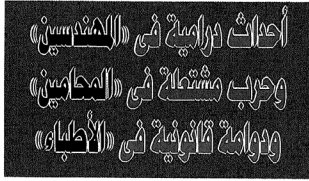 أحداث درامية فى «المهندسين»
وحرب مشتعلة فى «المحامين»
ودوامة قانونية فى «الأطباء»